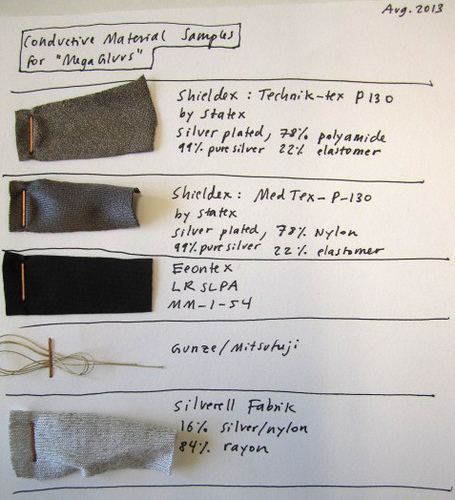 Aug. 2013
Conductive Material Samples
for "MegaGluvs"
Shieldex: Technik-tex P130
by Statex
silver plated, 78% polyamide
99% pure silver 22% elastomer
Shieldex: MedTex-P-130
by Statex
silver plated, 78% Nylon
99% pure silver 22% elastomer
Eeontex
LR SLPA
MM-1-54
Gunze/Mitsufuji
Silverell Fabrik
16% silver/nylon
84% rayon